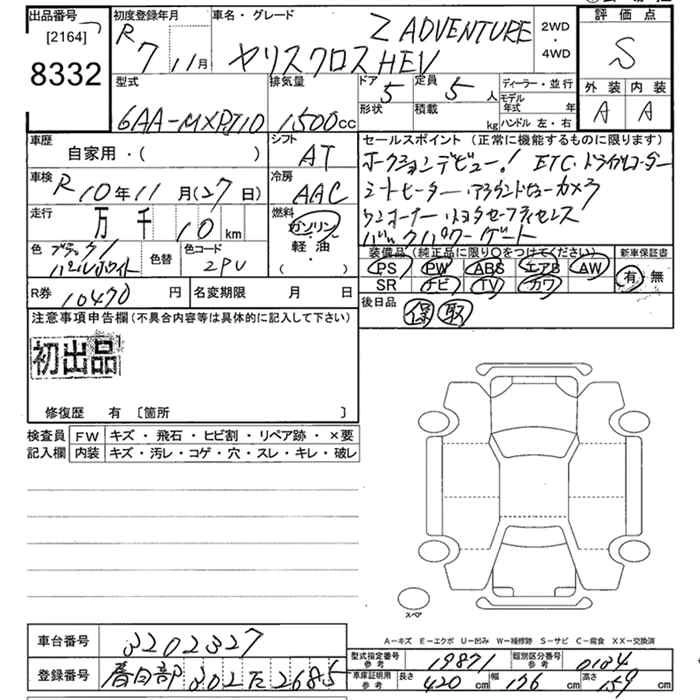 出品番号
[2164]
8332
初度登録年月
R 7 11月
車名・グレード
Z ADVENTURE
ヤリスクロス HEV
2WD
・
4WD
評価点
S
外装 内装
A A
型式
6AA-MXPJ10
排気量
1500cc
ドア 5
形状
定員 5人
積載 kg
ディーラー・並行
モデル年式 年
ハンドル 左・右
車歴
自家用・( )
シフト
AT
車検 R10年11月(27日)
冷房
AAC
走行 万 千 10 km
燃料
ガソリン
軽油
( )
色 ブラック/パールホワイト
色替
色コード
2PU
セールスポイント(正常に機能するものに限ります)
オークションデビュー! ETC・ドライブレコーダー
シートヒーター・アラウンドビューカメラ
ワンオーナー・トヨタセーフティセンス
バックパワーゲート
装備品(純正品に限り○をつけてください)
新車保証書
PS PW ABS エアB AW
有 無
SR ナビ TV カワ
R券 10470円
名変期限 月 日
後日品 保 取
注意事項申告欄(不具合内容等は具体的に記入して下さい)
初出品
修復歴 有 〔箇所 〕
検査員 FW キズ・飛石・ヒビ割・リペア跡・×要
記入欄 内装 キズ・汚レ・コゲ・穴・スレ・キレ・破レ
スペア
A-キズ E-エクボ U-凹み W-補修跡 S-サビ C-腐食 XX-交換済
車台番号 3202327
登録番号 春日部 302 た 2685
型式指定番号 参考 19871
類別区分番号 参考 0134
車庫証明用 参考 長さ 420cm 幅 176cm 高さ 159cm